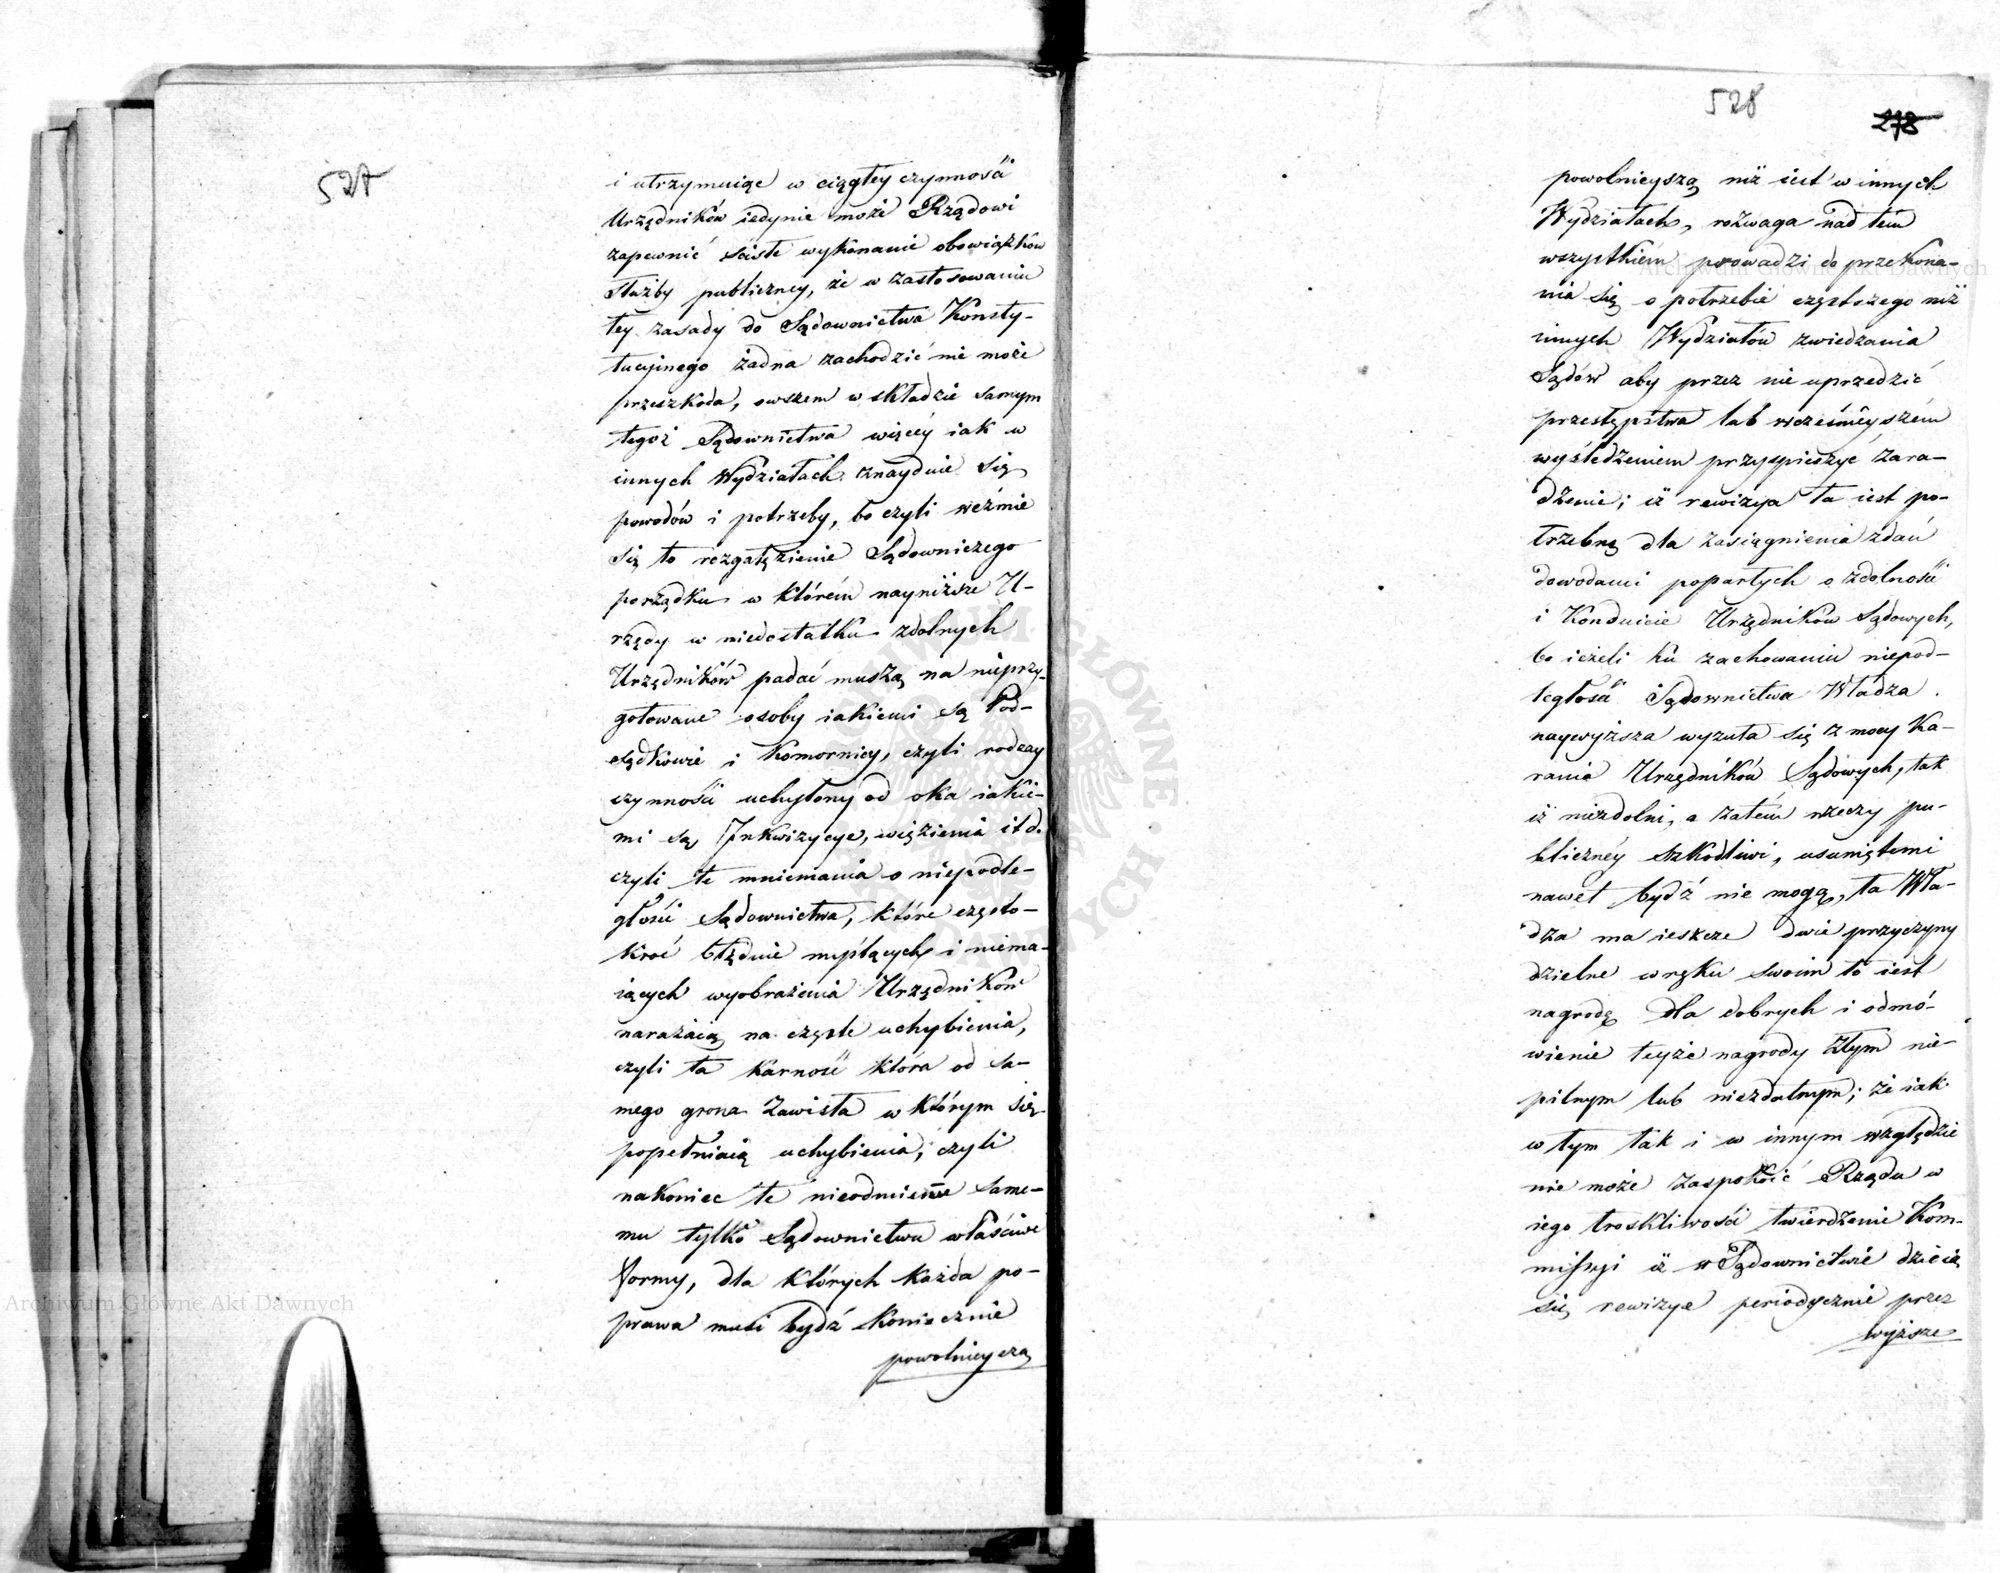 527
i utrzymuiąc w ciągłéy czynności
Urzędników iedynie może Rządowi
zapewnić ścisłe wykonanie obowiązków
służby publiczney, że w zastosowaniu
tey zasady do Sądownictwa Konsty-
tucyinego żadna zachodzić nie może
przeszkoda, owszem w składzie samym
tegoż Sądownictwa więcéy iak w
innych Wydziałach znayduie się
powodów i potrzeby, bo czyli weźmie
się to rozgałęzienie Sądowniczego
porządku w którém nayniższe U-
rzędy w niedostatku zdolnych
Urzędników padać muszą na nieprzy-
gotowane osoby iakiemi są Pod-
sędkowie i Komornicy, czyli rodzay
czynności uchylony od oka iakie-
mi są Inkwizycye, więzienia itd.
czyli te mniemania o niepodle-
głości Sądownictwa, które często-
kroć błędnie myślących i niema-
iących wyobrażenia Urzędników
narażaią na częste uchybienia,
czyli ta karność która od sa-
mego grona zawisła w którym się
popełniaią uchybienia, czyli
nakoniec te nieodmienne same-
mu tylko Sądownictwu właściwe
formy, dla których każda po-
prawa musi bydź koniecznie
powolnieyszą
528
278
powolnieyszą niż iest w innych
Wydziałach, rozwaga nad tém
wszystkiém prowadzi do przekona-
nia się o potrzebie częstszego niż
innych Wydziałów zwiedzania
Sądów aby przez nie uprzedzić
przestępstwa lub wcześnieyszém
wyśledzeniem przyspieszyć zara-
dzenie; iż rewizya ta iest po-
trzebną dla zasiągnienia zdań
dowodami popartych o zdolności
i Konduicie Urzędników Sądowych,
bo ieżeli ku zachowaniu niepod-
ległości Sądownictwa Władza
naywyższa wyzuła się z mocy Ka-
rania Urzędników Sądowych, tak
iż niezdolni, a zatém rzeczy pu-
bliczney szkodliwi, usuniętemi
nawet bydź nie mogą, ta Wła-
dza ma ieszcze dwie przyczyny
dzielne w ręku swoim to iest
nagrodę dla dobrych i odmó-
wienie teyże nagrody złym nie-
pilnym lub niezdatnym; że iak
w tym tak i w innym względzie
nie może zaspokoić Rządu w
iego troskliwości twierdzenie Kom-
missyi iż w Sądownictwie dzieią
się rewizye periodycznie przez
wyższe
Archiwum Główne Akt Dawnych
Archiwum Główne Akt Dawnych